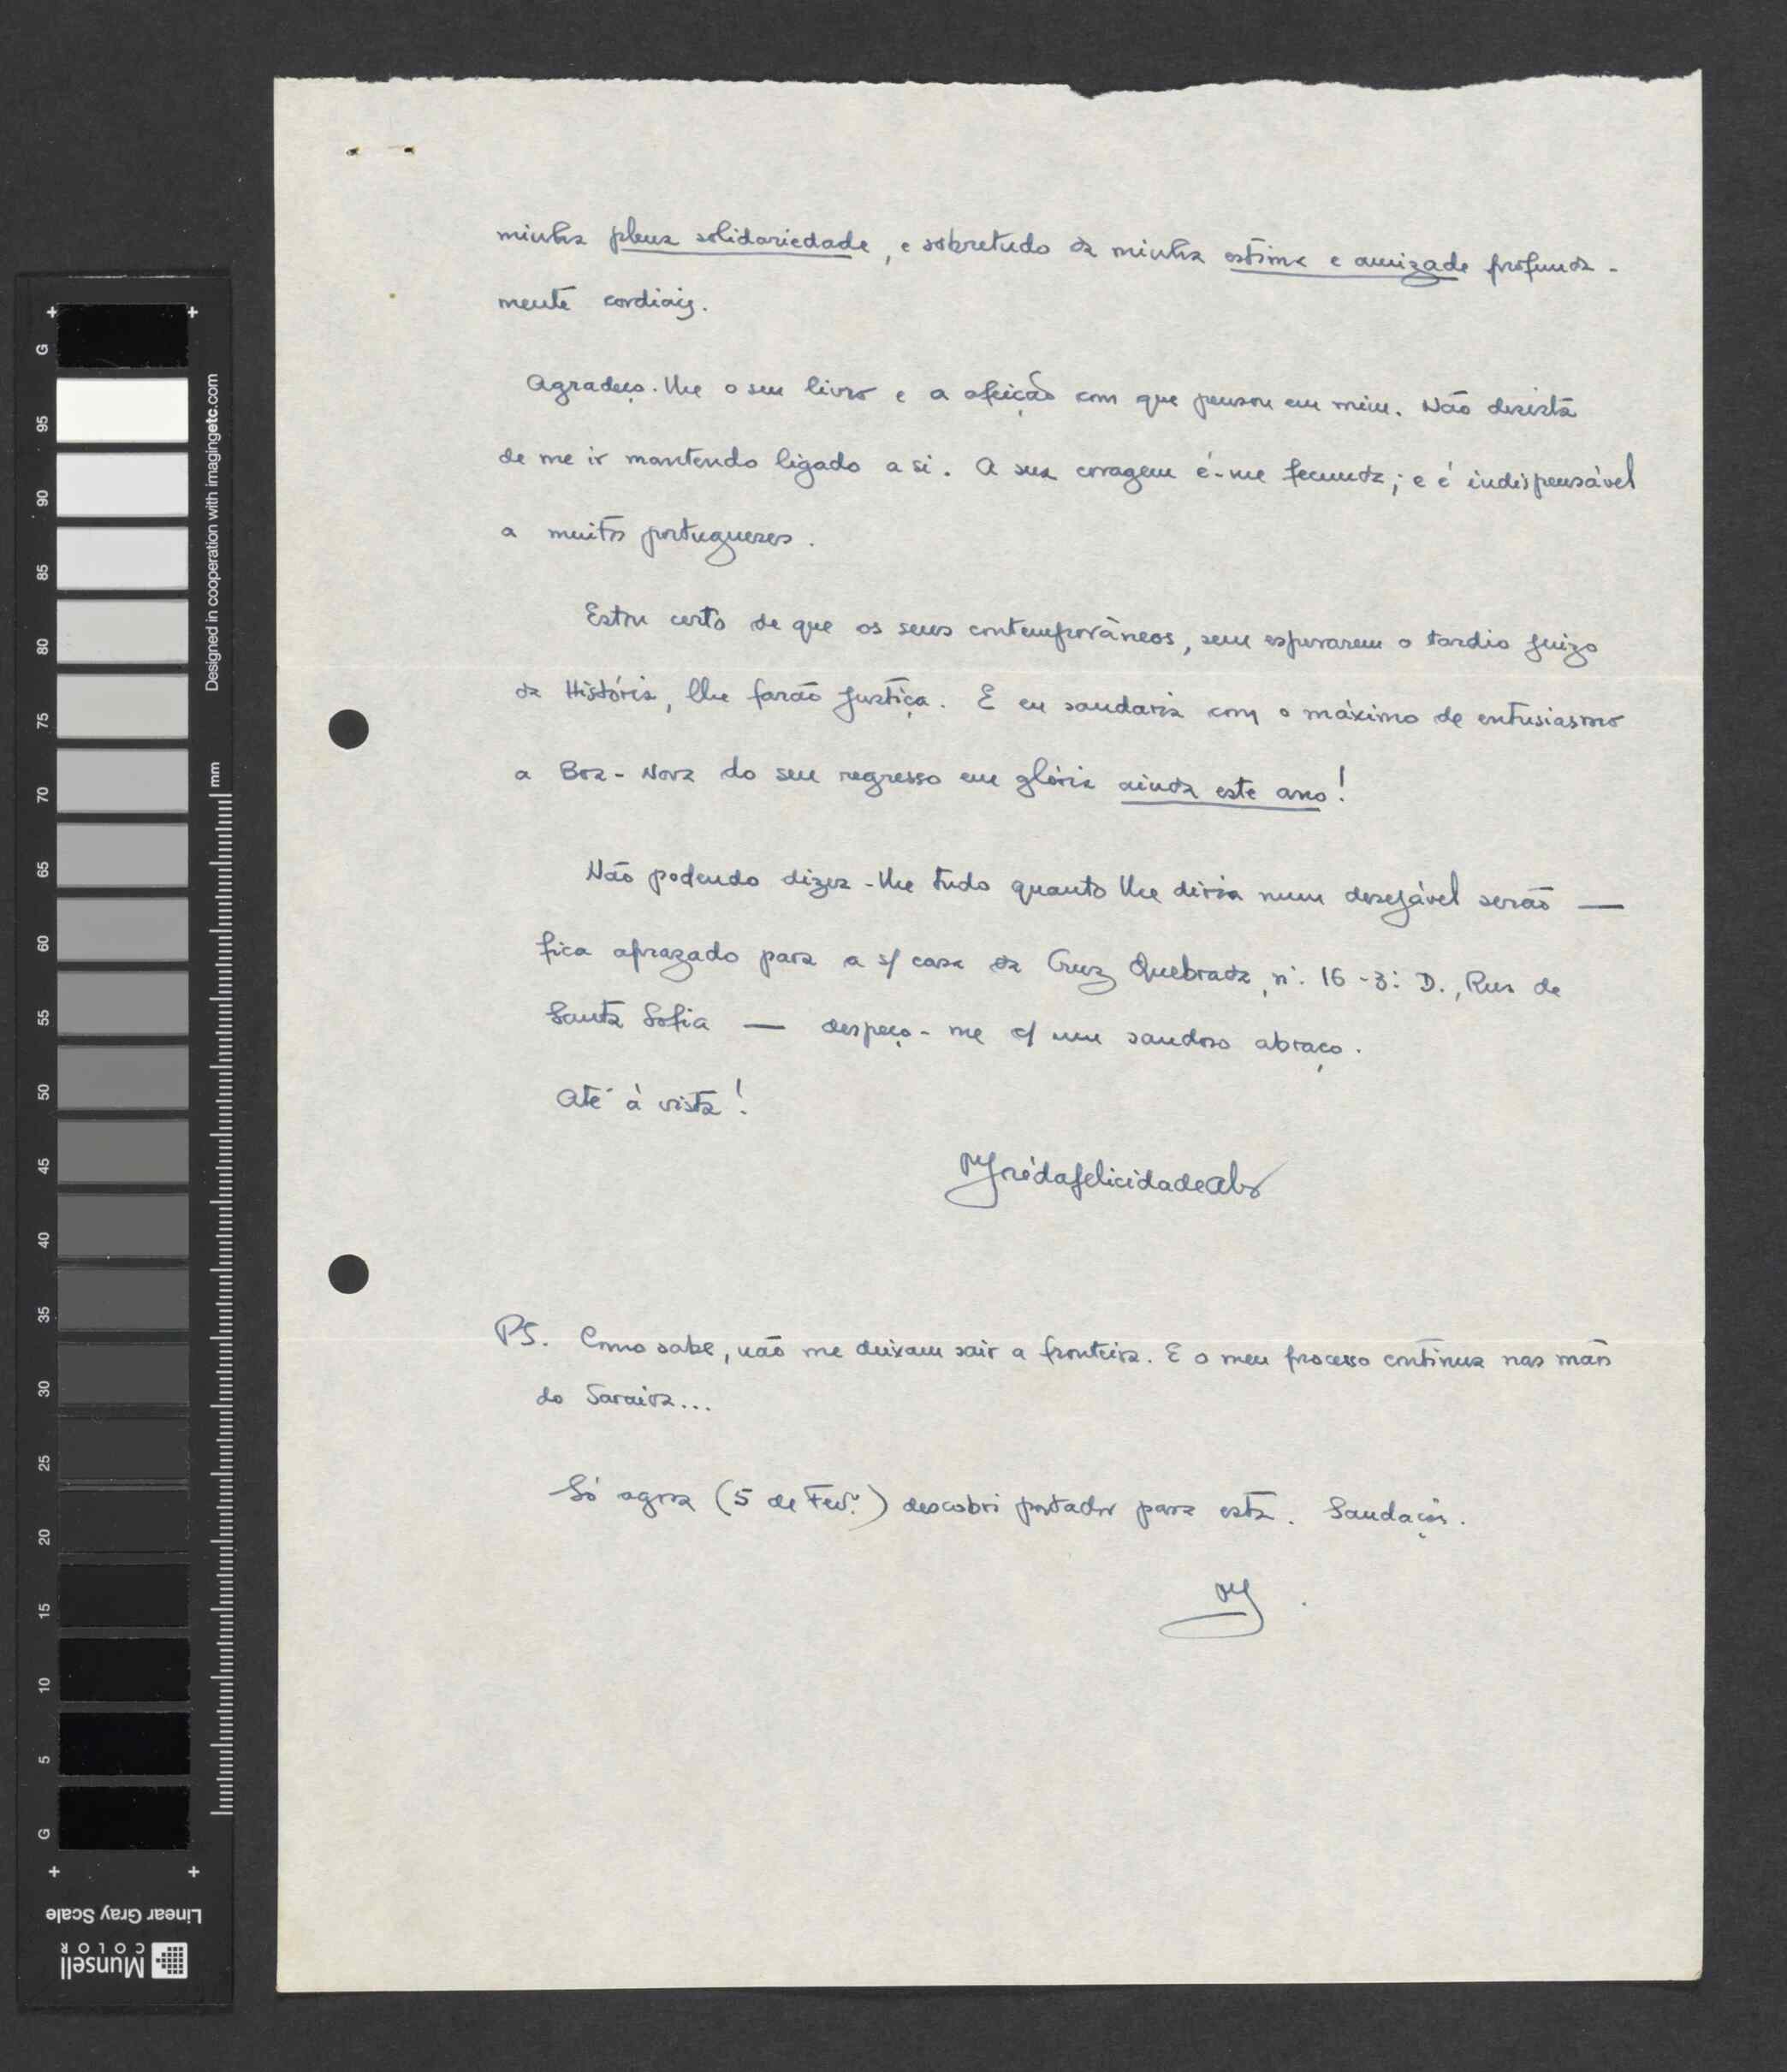 minha plena solidariedade, e sobretudo da minha estima e amizade profunda-
mente cordiais.
Agradeço-lhe o seu livro e a afeição com que pensou em mim. Não desista
de me ir mantendo ligado a si. A sua coragem é-me fecunda; e é indispensável
a muitos portugueses.
Estou certo de que os seus contemporâneos, sem esperarem o tardio juizo
da História, lhe farão justiça. E eu saudaria com o máximo de entusiasmo
a Boa-Nova do seu regresso em glória ainda este ano!
Não podendo dizer-lhe tudo quanto lhe diria num desejável serão —
fica aprazado para a s/ casa da Cruz Quebrada, nº. 16-3º. D., Rua de
Santa Sofia — despeço-me c/ um saudoso abraço.
Até à vista!
José da felicidade Alves
PS. Como sabe, não me deixam sair a fronteira. E o meu processo continua nas mãos
do Saraiva...
Só agora (5 de Fevº.) descobri portador para esta. Saudações.
G
95
90
85
80
75
70
65
60
55
50
45
40
35
30
25
20
15
10
5
G
Designed in cooperation with imagingetc.com
mm
Linear Gray Scale
Munsell
COLOR